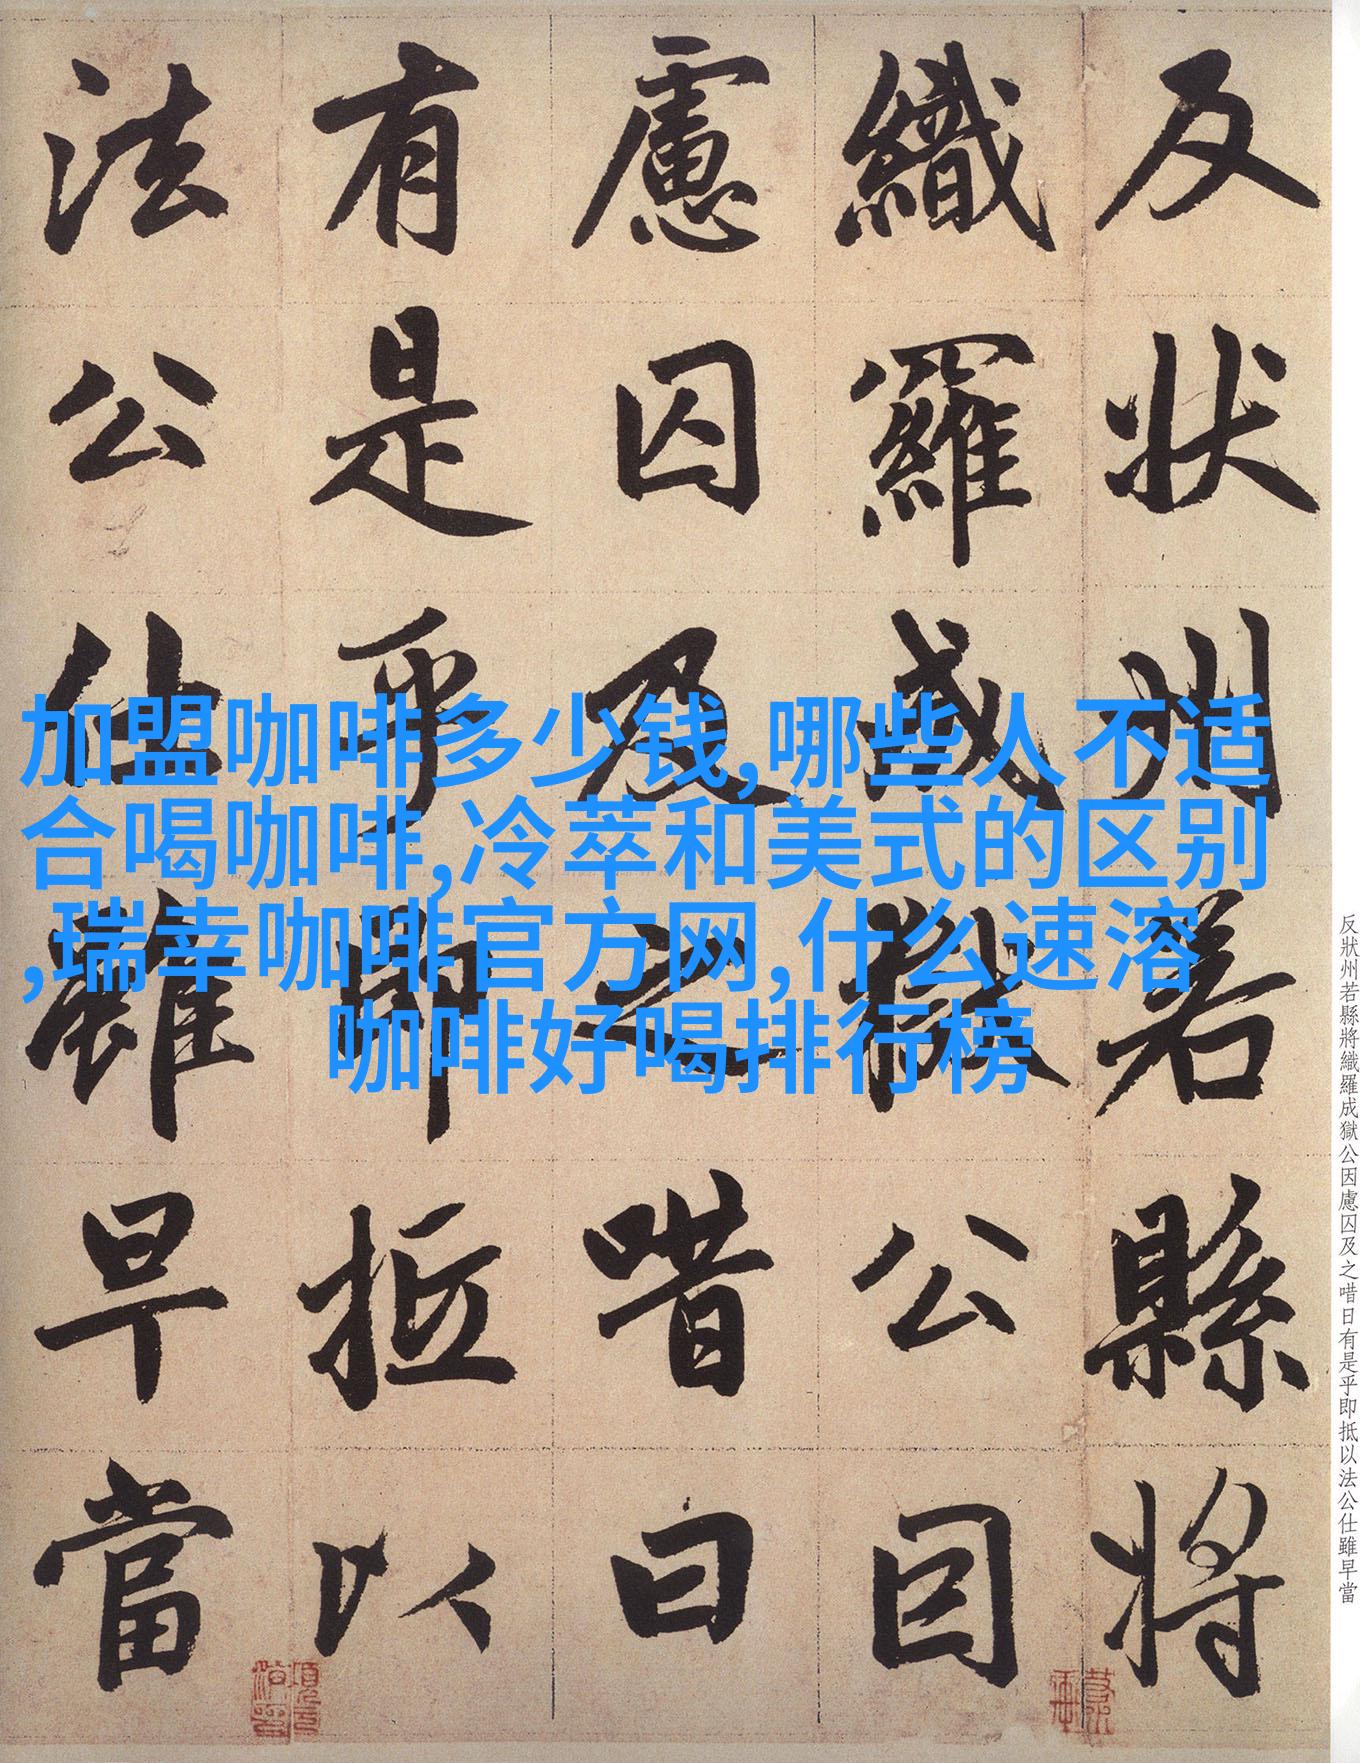 反状州若縣將
織羅成獄公因
慮囚及之唶曰
有是乎即抵以
法公仕雖早當
加盟咖啡多少钱,哪些人不适
合喝咖啡,冷萃和美式的区别
,瑞幸咖啡官方网,什么速溶
咖啡好喝排行榜
反狀州若縣將織羅成獄公因慮囚及之唶日有是乎即抵以法公仕雖早當